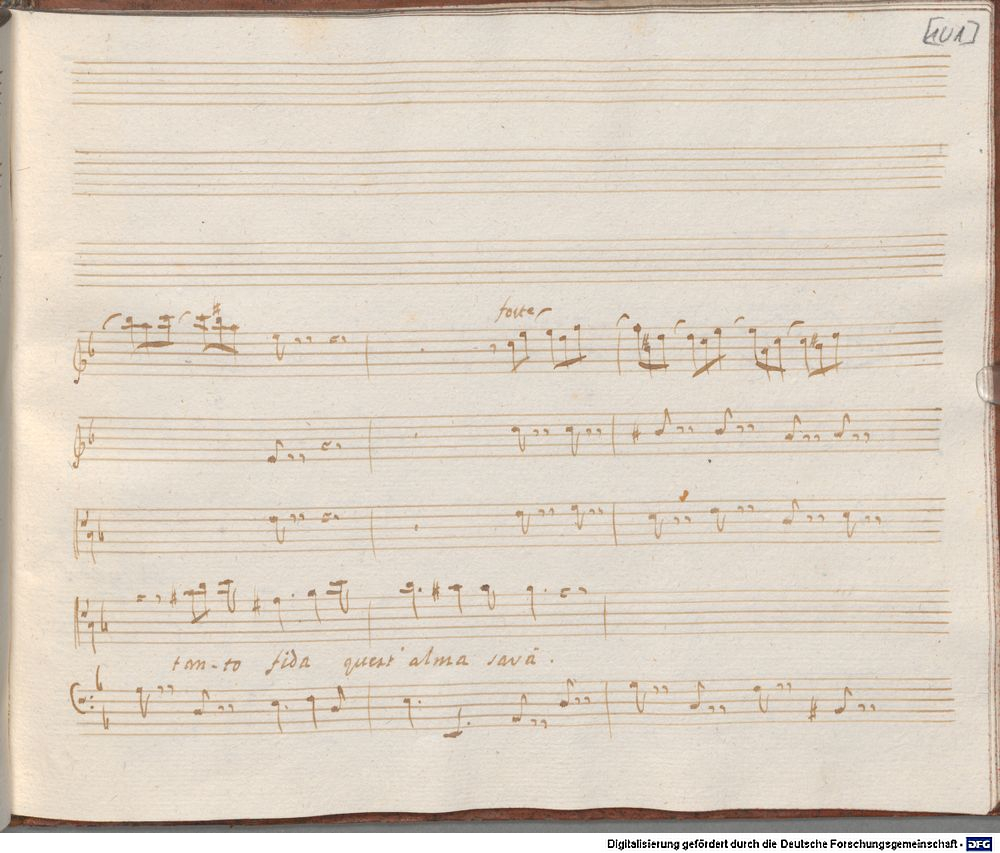 [101]
forte
tan-to fida quest' alma sarà.
Digitalisierung gefördert durch die Deutsche Forschungsgemeinschaft - DFG